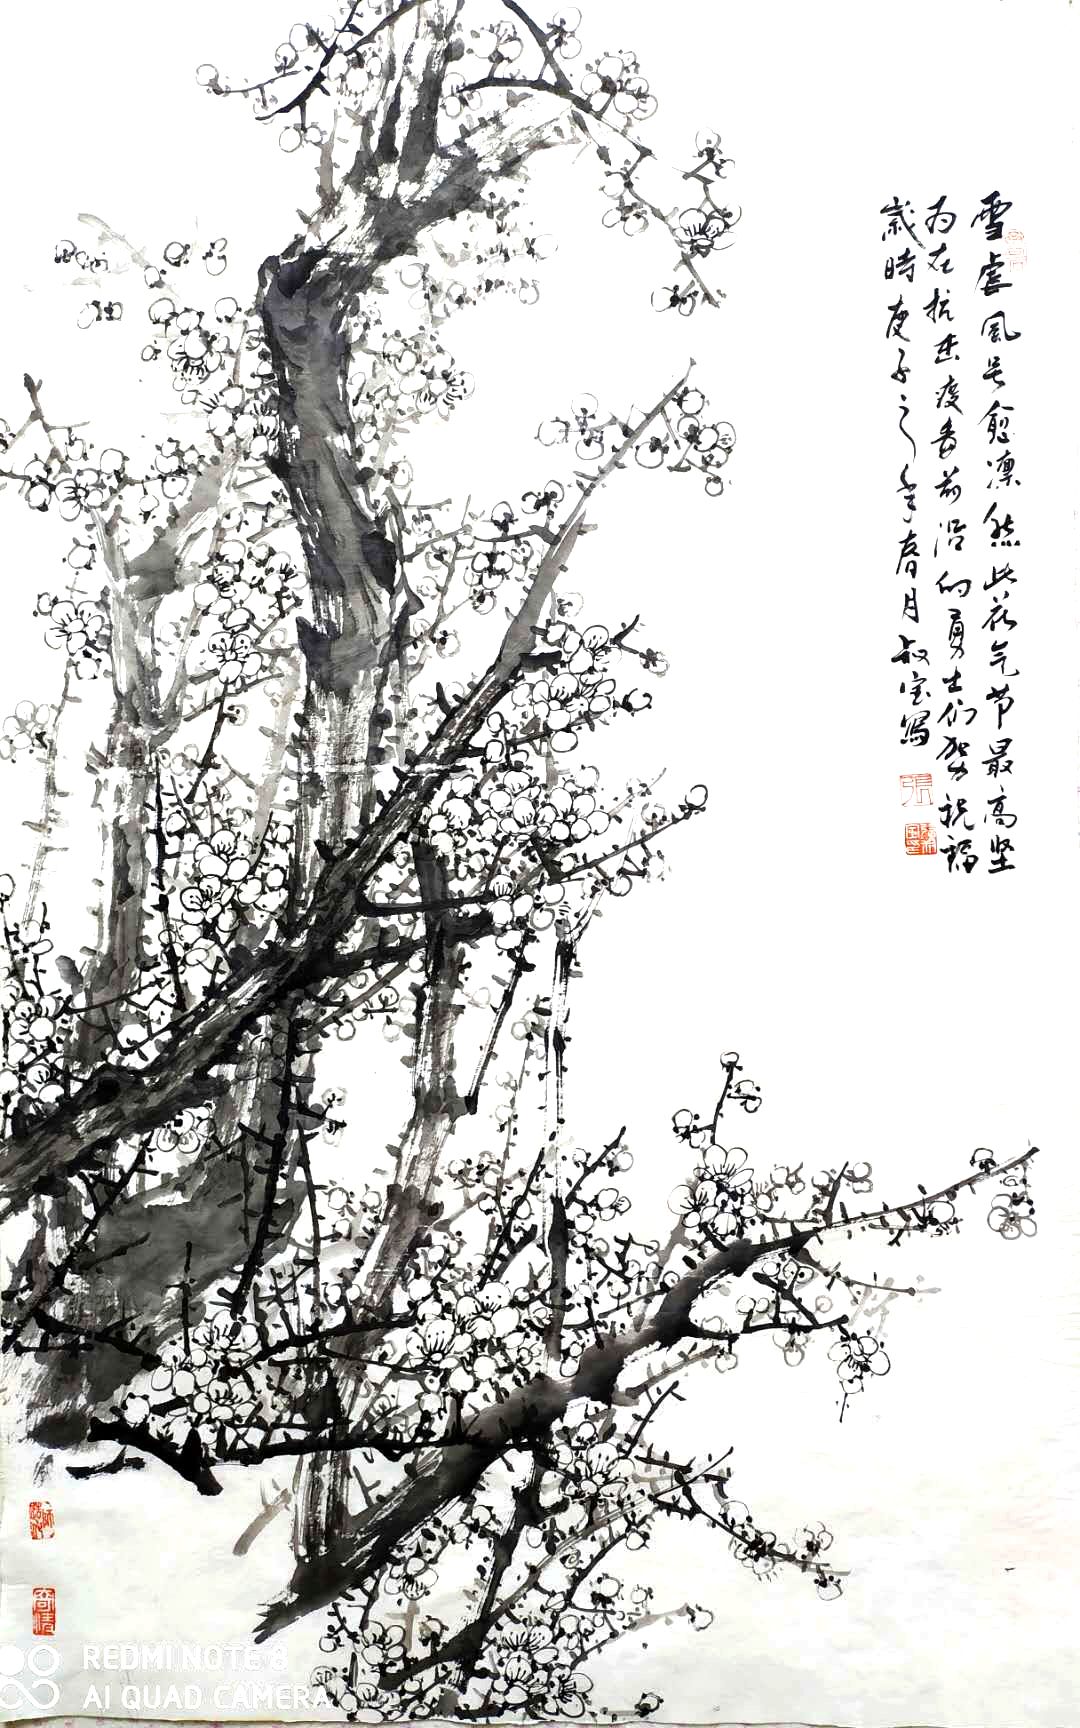 雪虐風号愈凛然此花气节最高坚
为在抗击疫毒前沿的勇士们努祝福
歲時庚子之年春月叔宝寫
張
奇清
REDMI NOTE 8
AI QUAD CAMERA